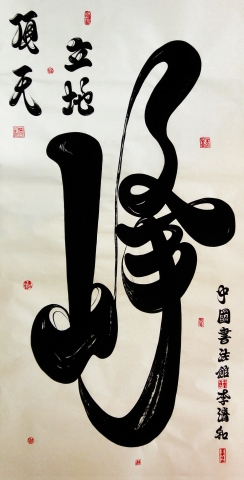 頂天
立地
峰
中國書法館李清和